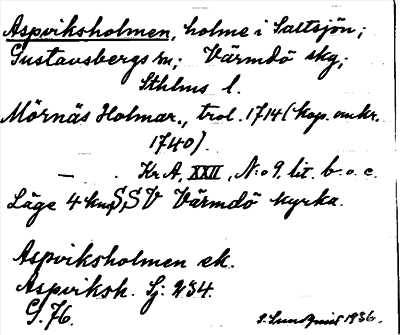 Aspviksholmen, holme i Saltsjön;
Gustavsbergs sn; Värmdö skg;
Sthlms l.
Mörnäs Holmar., trol. 1714 (kop. omkr.
1740).
— . Kr A, XXII, N:o 9, lit. b. o. c.
Läge 4 km SSV Värmdö kyrka.
Aspviksholmen ek.
Aspviksh. Sj: 234.
G. 76.
1936.